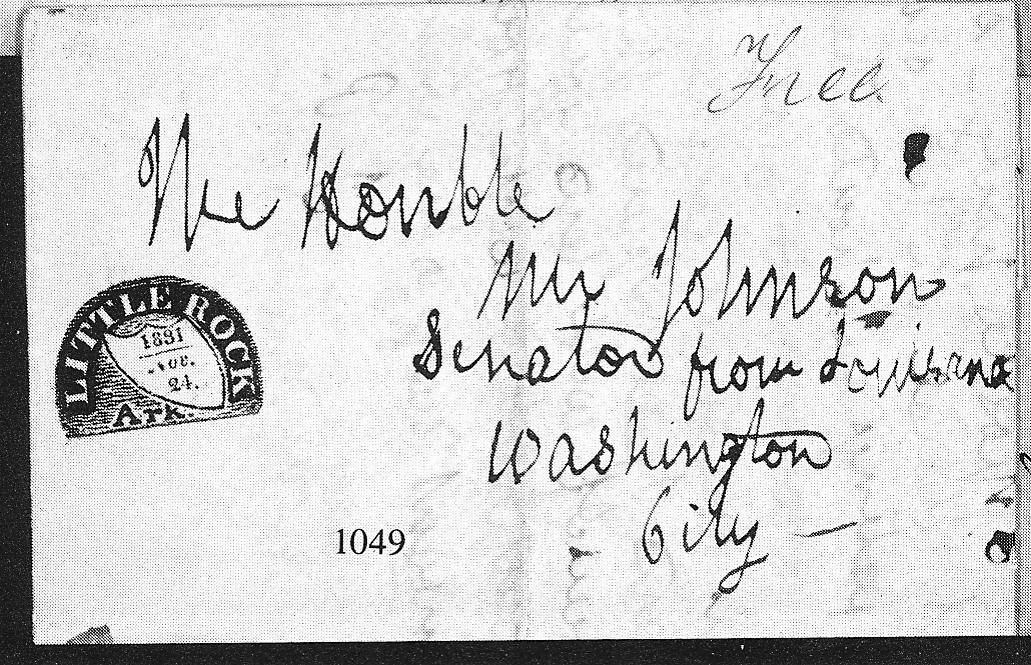 Free
The Honble
Mr Johnson
Senator from Louisiana
Washington
City —
LITTLE ROCK
1831
Nov.
24.
Ark.
1049